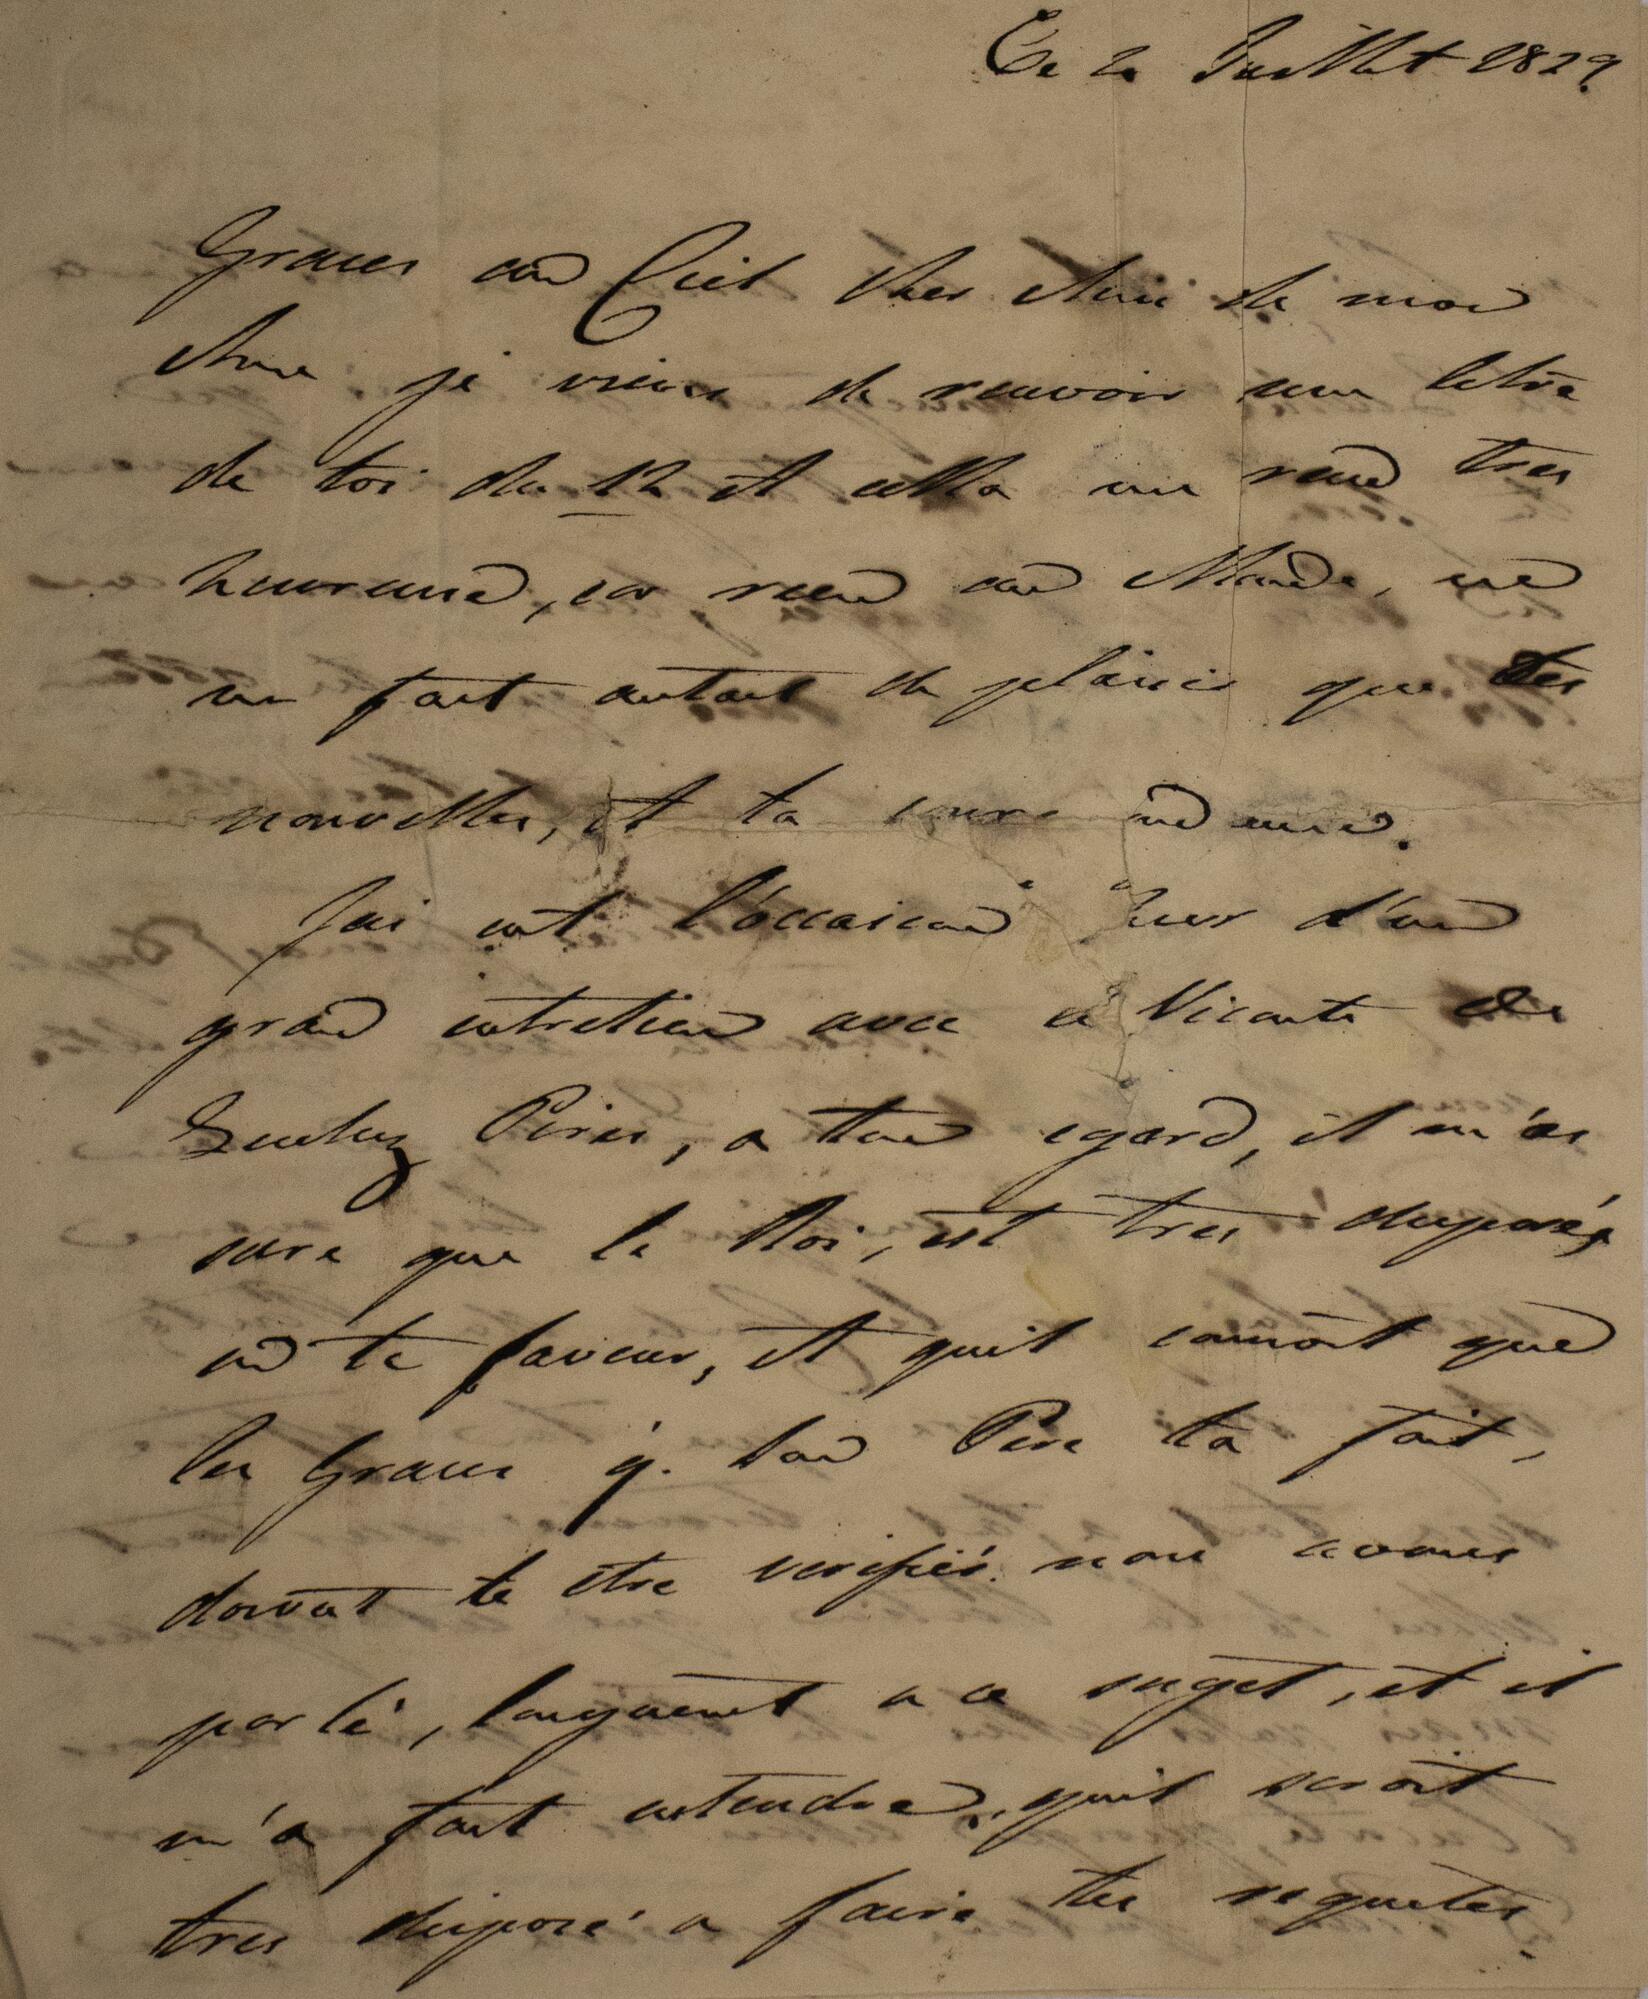 Ce 2 Juillet 1829.
Graces au Ciel cher Ami de mon
Ame je viens de recevoir une letre
de toi du 12 et cella me rend tres
heureuse, car rien au Monde, ne
me fait autant de plaisir que tes
nouvelles, et ta
Jai eut l'occasion hier d'un
grand entretien avec Viconte de
Queluz Pires, a ton egard, il m'as
sure que le Roi, est tres disposé,
en te faveur, et quil connoit que
les Graces q. son Pere ta fait,
doivent te être verifiés. nous avons
parlé, longuement a ce suget, et il
m'a fait entendre, quil seroit
tres disposé a faire tes requetes.